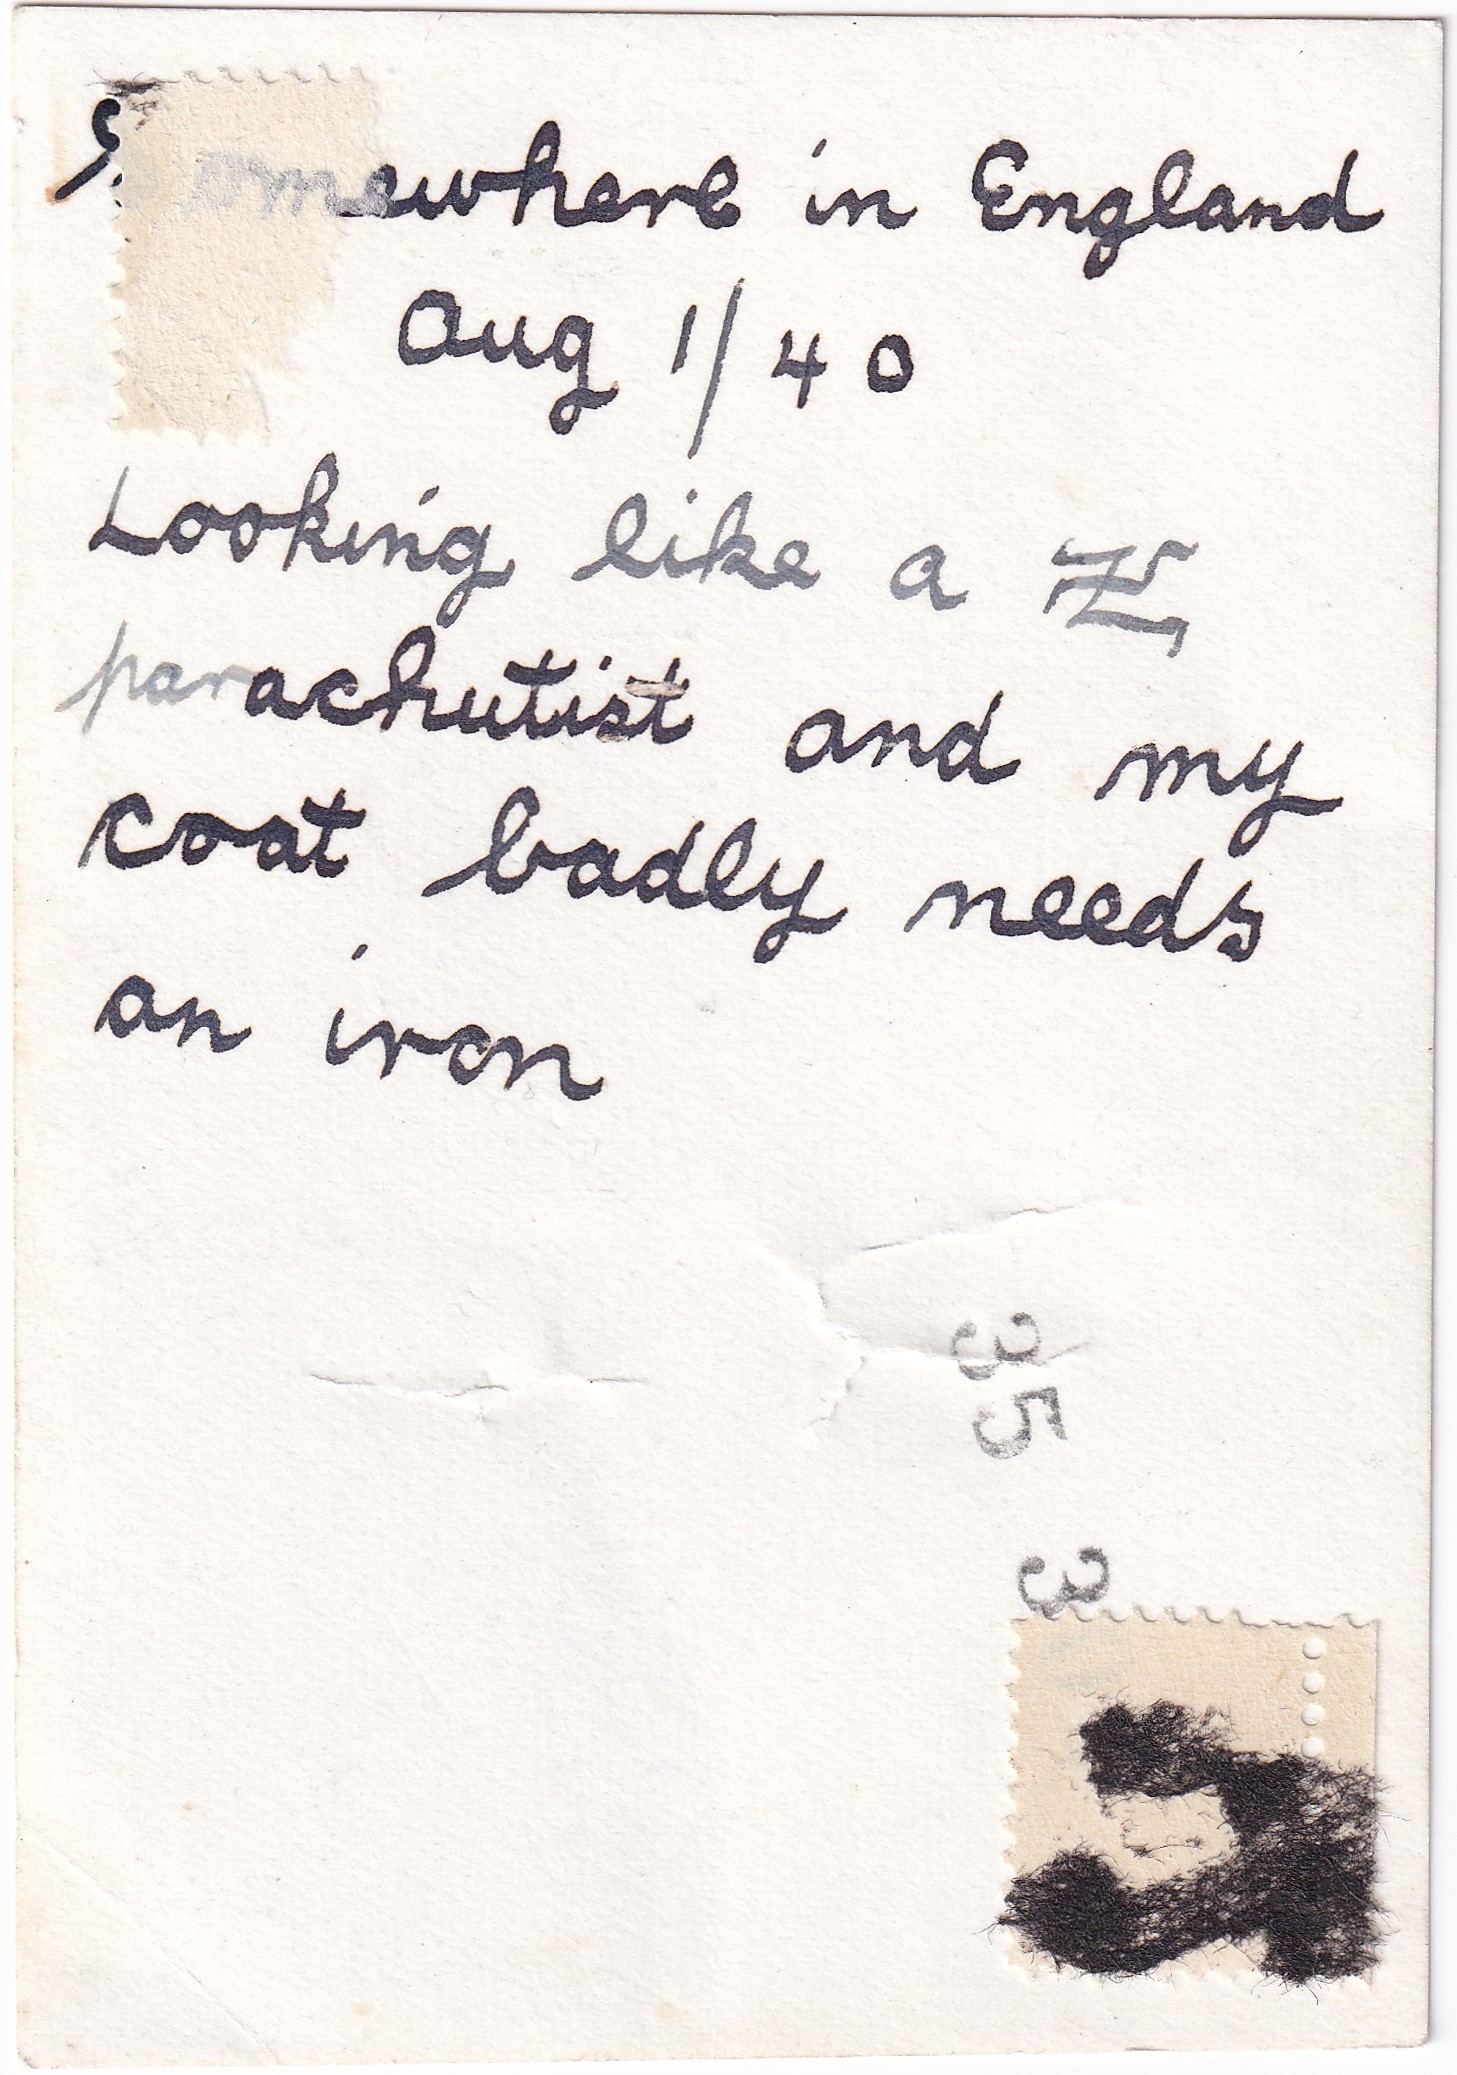 Somewhere in England
Aug 1/40
Looking like a Z
parachutist and my
coat badly needs
an iron
35 3